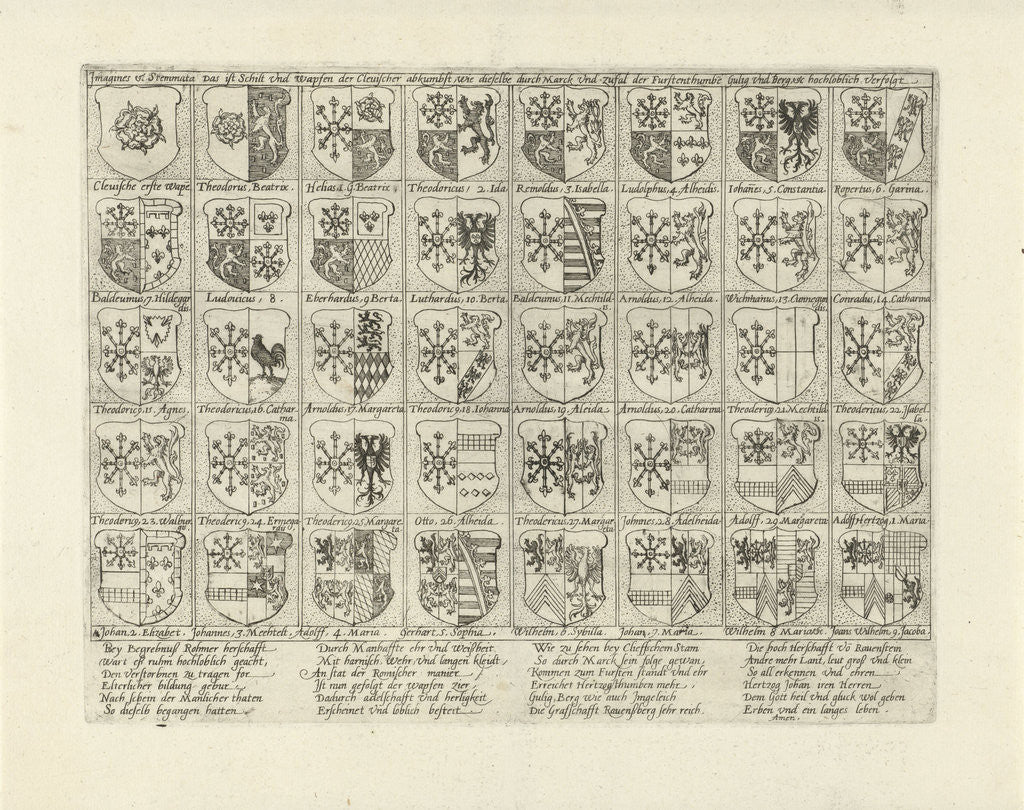 Imagines et Stemmata Das ist Schilt Vnd Wapfen der Clevischer abkumbst wie dieselbe durch Marck Vnd zufal der Furstenthumbe Gulig Vnd Berg etc hochloblich verfolgt
Clevische erste Wape Theodorus, Beatrix. Helias 1 G. Beatrix Theodoricus, 2. Ida Reinoldus, 3. Isabella Ludolphus, 4. Alheidis. Iohanes, 5. Constantia Ropertus, 6. Garina.
Baldeuinus, 7. Hildegardis. Ludouicus, 8. Eberhardus, 9 Berta. Luthardus, 10. Berta Baldeuinus, 11. Mechtildis. Arnoldus, 12. Alheida. Wichmanus, 13. Cunnegundis. Conradus, 14. Catharina
Theodoric9, 15. Agnes. Theodoricus, 16. Catharina. Arnoldus, 17. Margareta Theodoric9, 18. Iohanna Arnoldus, 19. Aleida. Arnoldus, 20. Catharina Theoderic9, 21. Mechtildis. Theodericus, 22. Isabella.
Theoderic9, 23. Walburgis Theoderic9, 24. Ermegardis Theodoric9, 25. Margareta Otto, 26. Alheida. Theodericus, 27. Margareta Johnnes, 28. Adelheida Adolff, 29. Margareta Adolff Hertzog, 1. Maria
Johan, 2. Elizabet. Johannes, 3. Mechtelt, Adolff, 4. Maria. Gerhart, 5. Sophia. Wilhelm, 6. Sybilla Johan, 7. Maria. Wilhelm 8 Maria Joans Wilhelm, 9. Jacoba.
Bey Begrebnuß Rohmer herschafft
Wart es ruhm hochloblich geacht,
Den Verstorbnen zu tragen for
Elterlicher bildung gebur
Nach schein der Manlicher thaten
So dieselb begangen hatten
Durch Manhaffte ehr Vnd Weißheit
Mit harnisch, Wehr, Vnd langen kleidt,
An stat der Romischer manier
Ist nun gefolgt der Wapfen Zier,
Dadurch adelschafft Vnd herligkeit
Erscheinet Vnd loblich besteit
Wie zu sehen bey Clefischem Stam
So durch Marck sein folge gewan,
Kommen zum Fursten standt Vnd ehr
Erreichet Hertzogthumben mehr,
Gulig, Berg wie auch Ingeleich
Die Grafschafft Rauenßberg sehr reich.
Die hoch Herschafft Vo Rauenstein
Andre mehr Lant, leut groß Vnd klein
So all erkennen Vnd ehren
Hertzog Johan iren Herren
Dem Gott heil Vnd gluck wol geben
Erben Vnd ein langes leben
Amen.